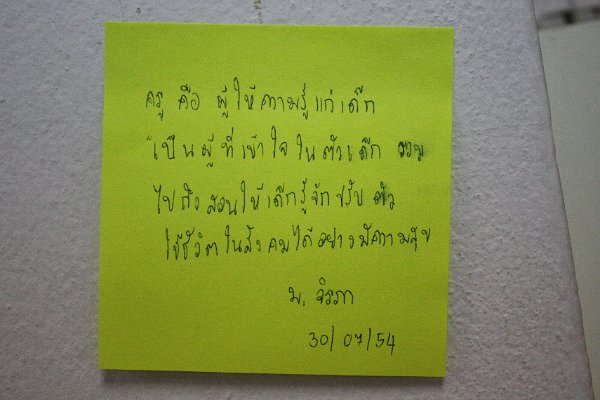 ครู คือ ผู้ให้ความรู้แก่เด็ก
เป็นผู้ที่เข้าใจในตัวเด็ก รวม
ไปถึงสอนให้เด็กรู้จักปรับตัว
ใช้ชีวิตในสังคมได้อย่างมีความสุข
น. จิรภา
30/07/54